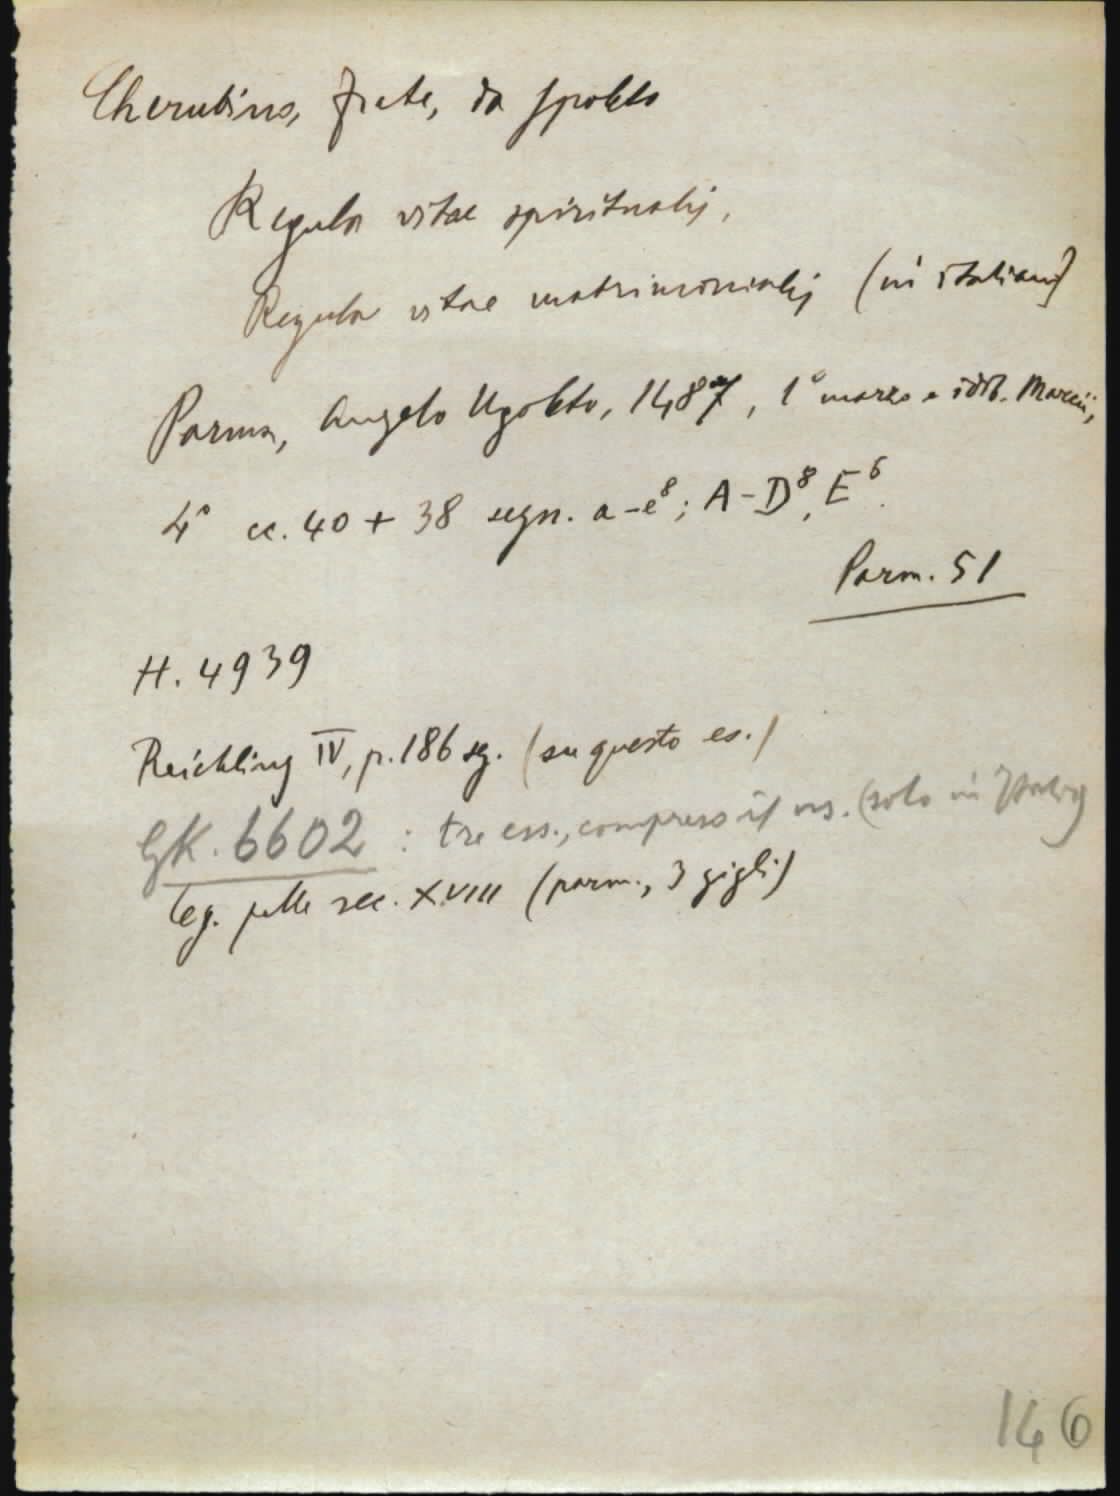 Cherubino, frate, da Spoleto
Regula vitae spiritualis,
Regula vitae matrimonialis (in italiano)
Parma, Angelo Ugoleto, 1487, 1° marzo e idib. Marcii,
4° cc. 40 + 38 segn. a-e⁸; A-D⁸, E⁶.
Parm. 51
H. 4939
Reichling IV, p. 186 sg. (su questo es.)
GK. 6602 : tre ess., compreso il ns. (solo in Italia)
Leg. pelle sec. XVIII (parm., 3 gigli)
146